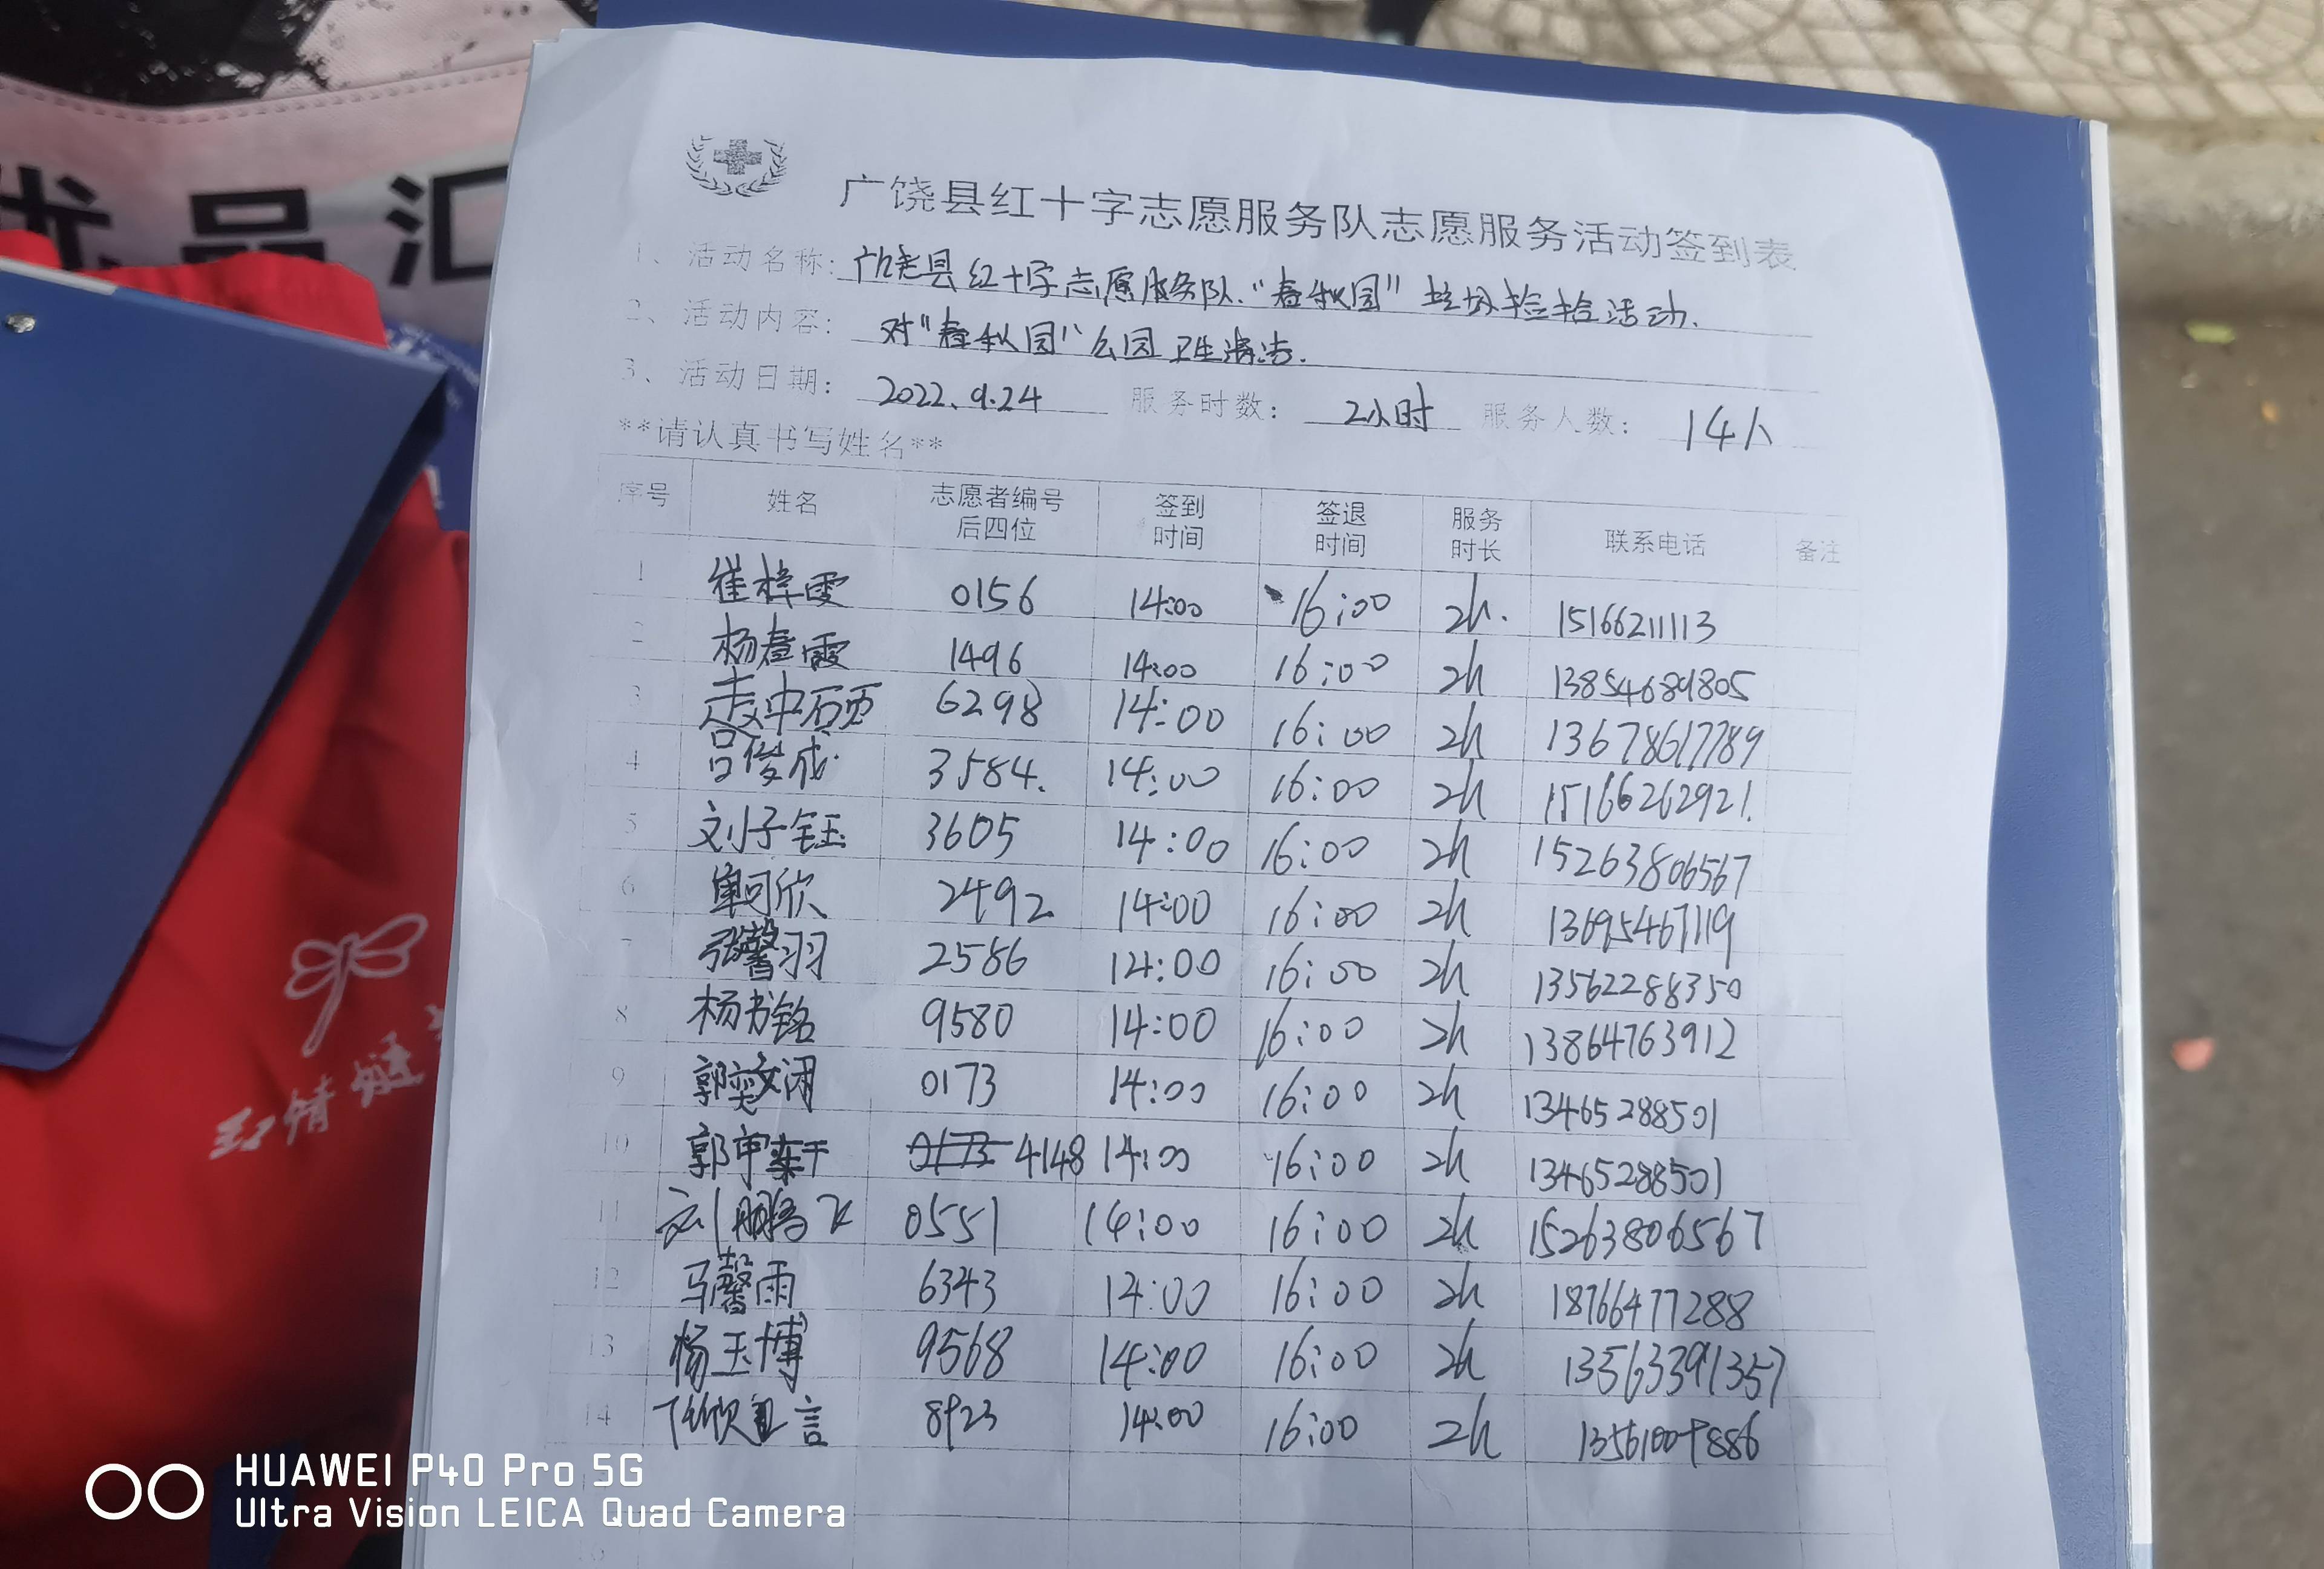 优品汇
广饶县红十字志愿服务队志愿服务活动签到表
1、活动名称: 广饶县红十字志愿服务队“春秋园”垃圾捡拾活动.
2、活动内容: 对“春秋园”公园卫生清洁.
3、活动日期: 2022.9.24 服务时数: 2小时 服务人数: 14人
**请认真书写姓名**
序号 姓名 志愿者编号后四位 签到时间 签退时间 服务时长 联系电话 备注
1 崔梓雯 0156 14:00 16:00 2h. 15166211113
2 杨春霞 1496 14:00 16:00 2h 13854689805
3 赵中硕 6298 14:00 16:00 2h 13678617789
4 吕俊成 3584. 14:00 16:00 2h 15166262921.
5 刘子钰 3605 14:00 16:00 2h 15263806567
6 单可欣 2492 14:00 16:00 2h 13695467119
7 张馨羽 2586 14:00 16:00 2h 13562288350
8 杨书铭 9580 14:00 16:00 2h 13864763912
9 郭奕汶闲 0173 14:00 16:00 2h 13465288501
10 郭 4148 14:00 16:00 2h 13465288501
11 刘鹏飞 0551 14:00 16:00 2h 15263806567
12 马馨雨 6343 14:00 16:00 2h 18766477288
13 杨玉博 9568 14:00 16:00 2h 13563391357
14 8923 14:00 16:00 2h
红情
HUAWEI P40 Pro 5G
Ultra Vision LEICA Quad Camera